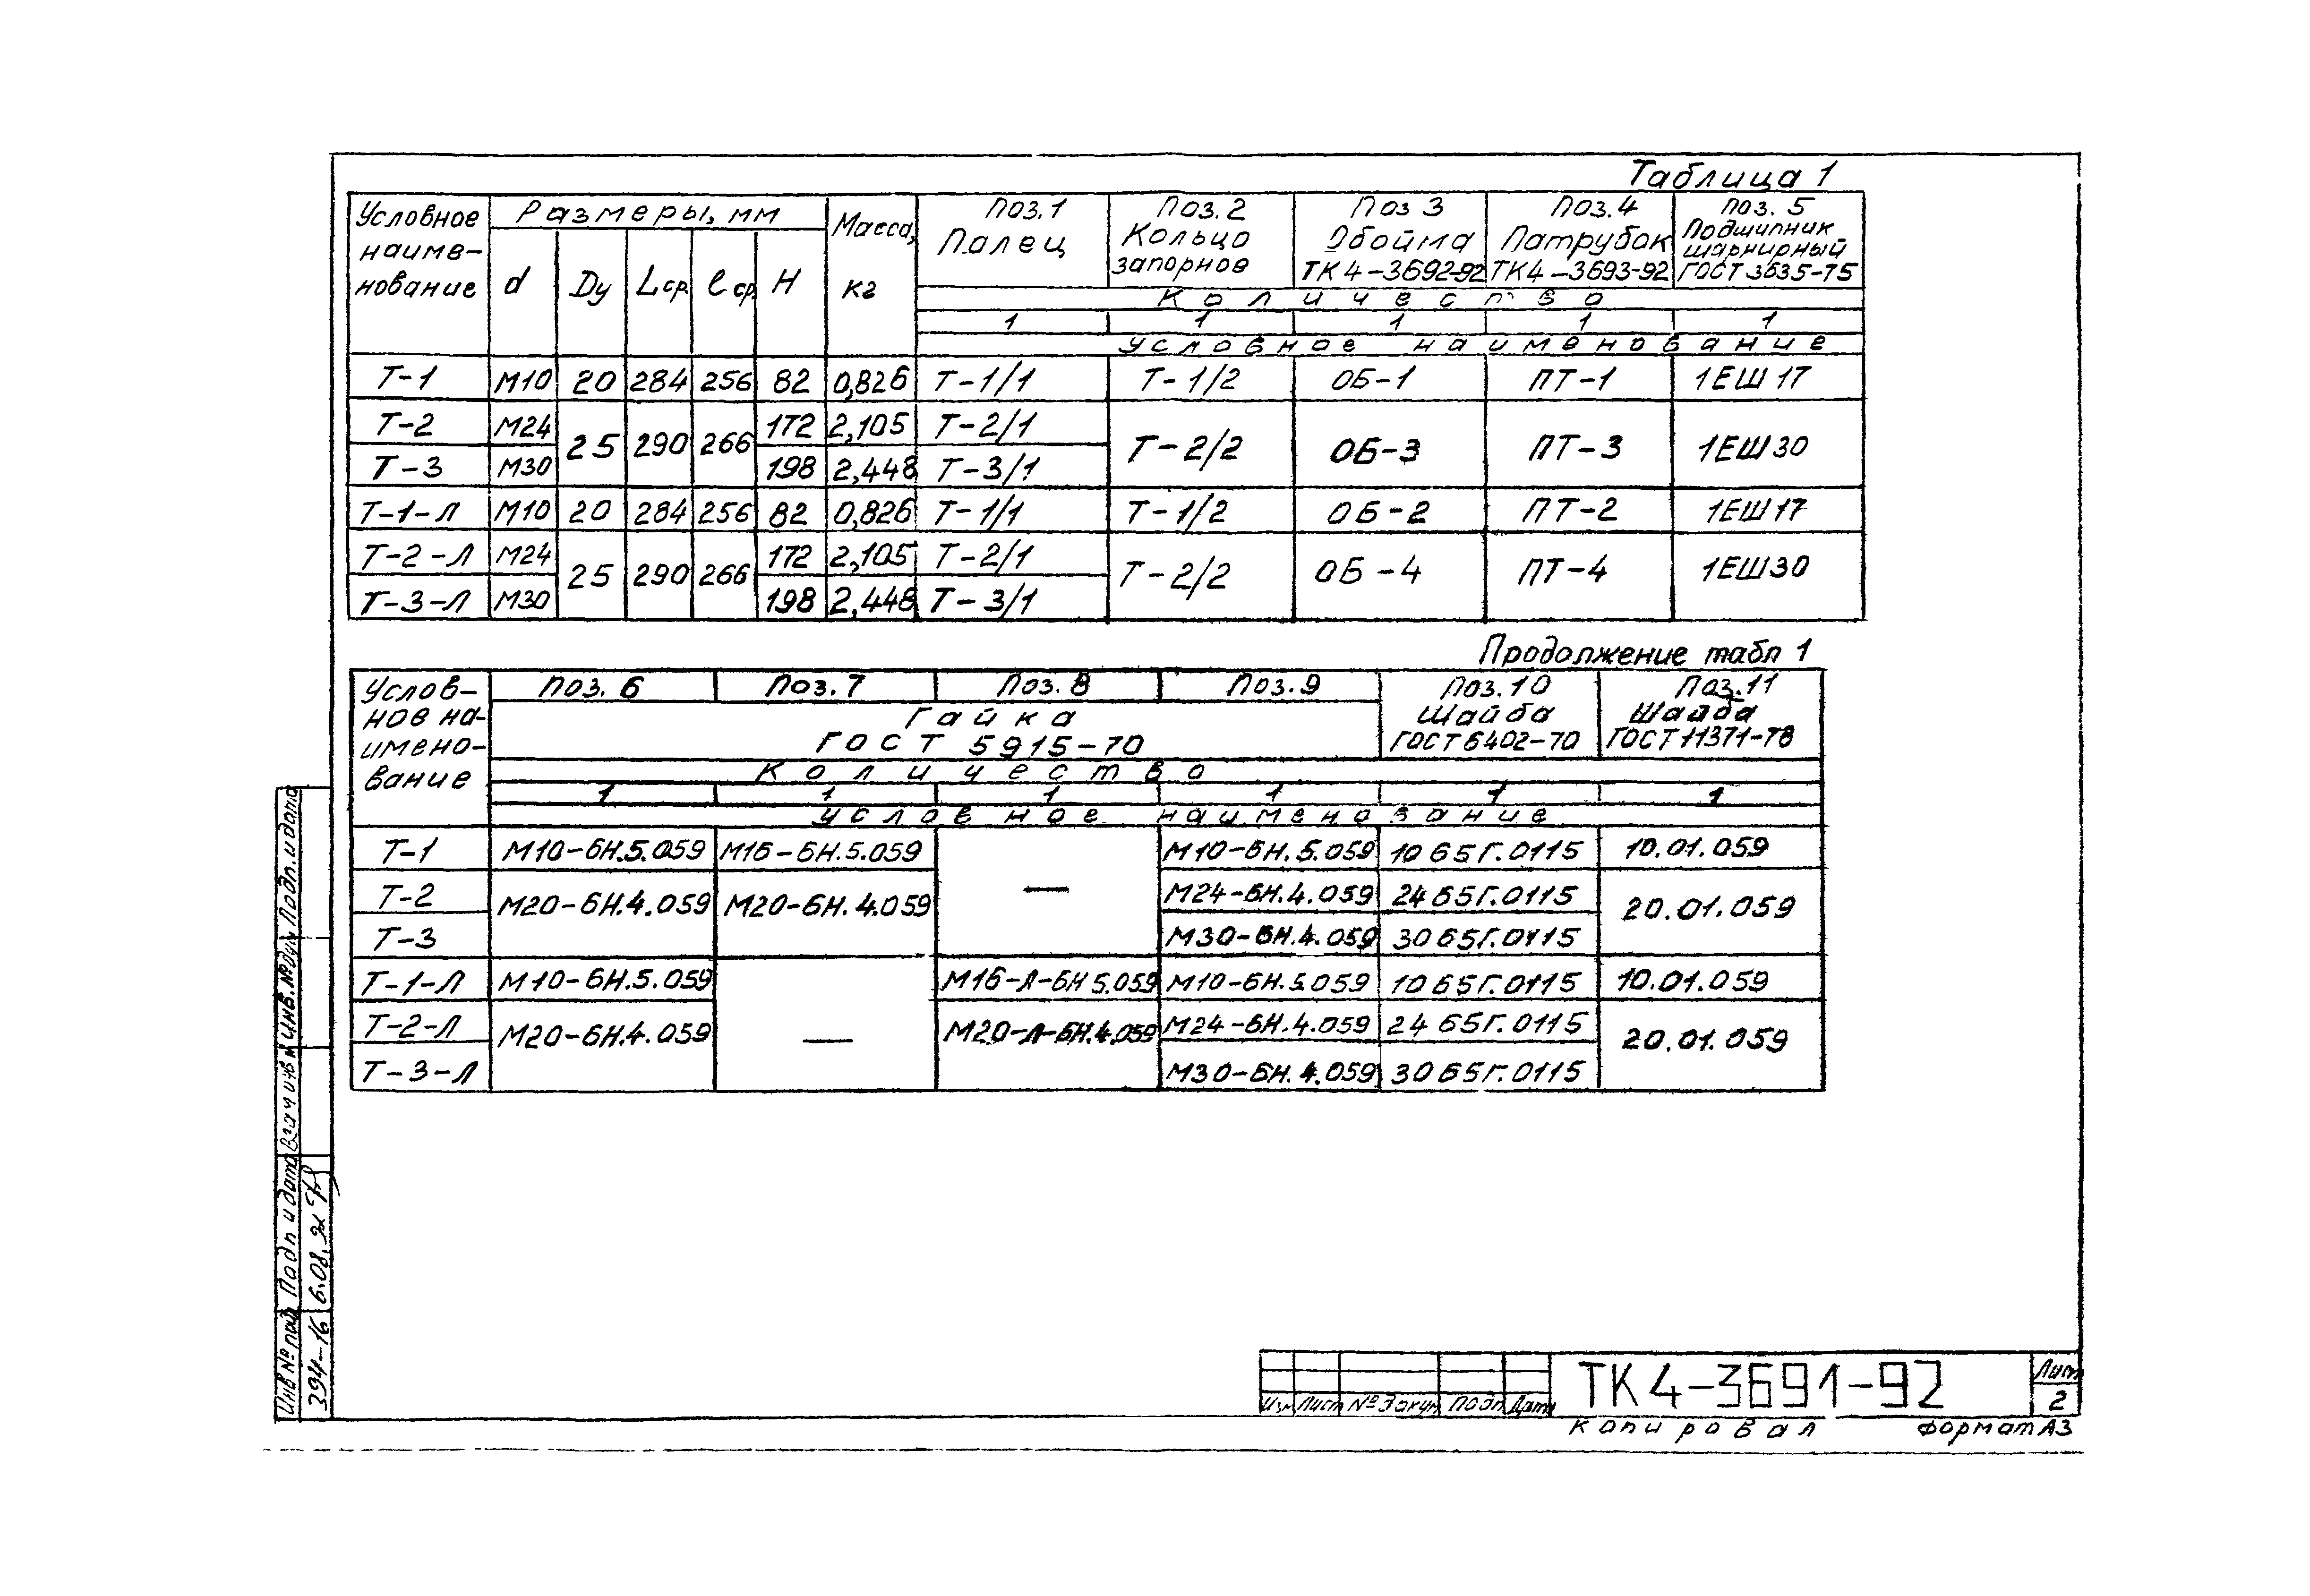 Таблица 1
Условное наиме- нование
Размеры, мм
d Dу Lср. ℓср. H
Масса, кг
Поз.1 Палец
Поз.2 Кольцо запорное
Поз 3 Обойма ТК4-3692-92
Поз.4 Патрубок ТК4-3693-92
Поз. 5 Подшипник шарнирный ГОСТ 3635-75
Количество
1 1 1 1 1
Условное наименование
Т-1 М10 20 284 256 82 0,826 Т-1/1 Т-1/2 ОБ-1 ПТ-1 1ЕШ17
Т-2 М24 25 290 266 172 2,105 Т-2/1 Т-2/2 ОБ-3 ПТ-3 1ЕШ30
Т-3 М30 198 2,448 Т-3/1
Т-1-Л М10 20 284 256 82 0,826 Т-1/1 Т-1/2 ОБ-2 ПТ-2 1ЕШ17
Т-2-Л М24 25 290 266 172 2,105 Т-2/1 Т-2/2 ОБ-4 ПТ-4 1ЕШ30
Т-3-Л М30 198 2,448 Т-3/1
Продолжение табл 1
Услов- нов на- имено- вание
Поз. 6 Поз.7 Поз. 8 Поз.9
Гайка
ГОСТ 5915-70
Поз.10 Шайба ГОСТ 6402-70
Поз.11 Шайба ГОСТ 11371-78
Количество
1 1 1 1 1 1
Условное наименование
Т-1 М10-6Н.5.059 М16-6Н.5.059 — М10-6Н.5.059 10 65Г.0115 10.01.059
Т-2 М20-6Н.4.059 М20-6Н.4.059 М24-6Н.4.059 24 65Г.0115 20.01.059
Т-3 М30-6Н.4.059 30 65Г.0115
Т-1-Л М10-6Н.5.059 — М16-Л-6Н 5.059 М10-6Н.5.059 10 65Г.0115 10.01.059
Т-2-Л М20-6Н.4.059 М20-Л-6Н.4.059 М24-6Н.4.059 24 65Г.0115 20.01.059
Т-3-Л М30-6Н.4.059 30 65Г.0115
Инв № подл Подп и дата Взам инв № Инв.№ дубл Подп. и дата
394-16 6.08.92
Изм Лист № докум Подп Дата
ТК4-3691-92
Лист
2
Копировал Формат А3